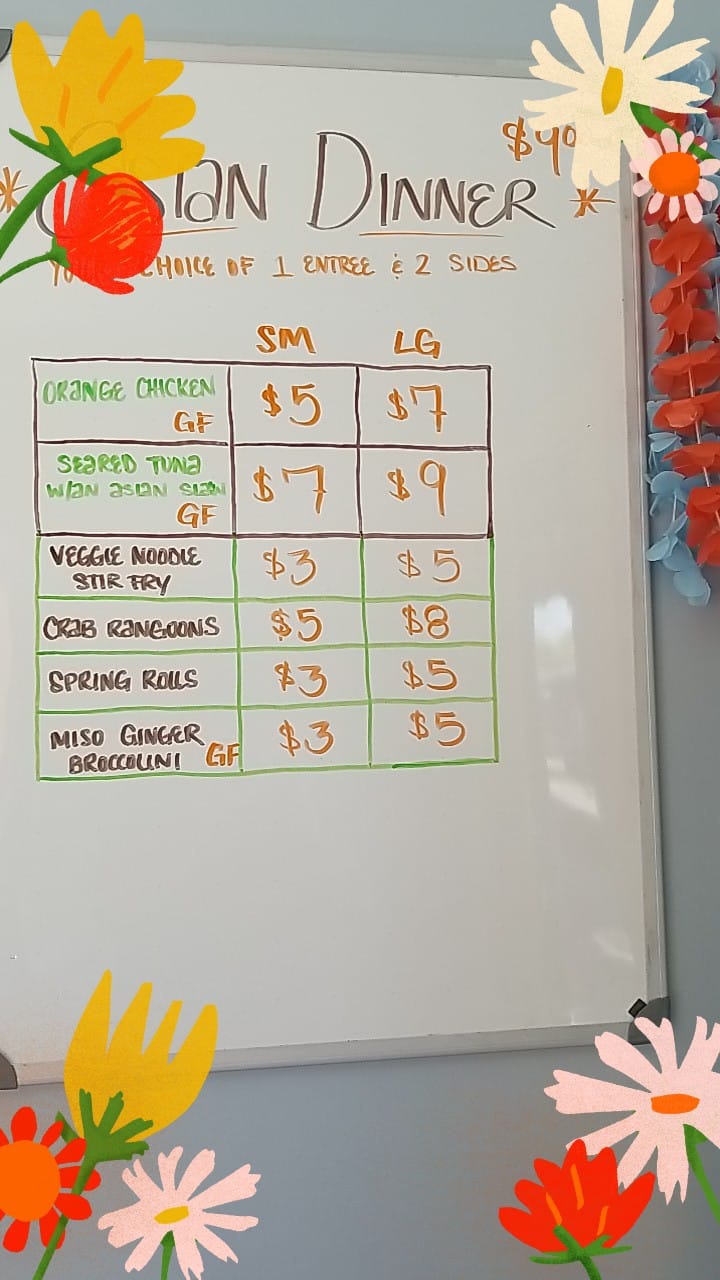 $9⁰
*
ASIAN DINNER *
CHOICE OF 1 ENTREE & 2 SIDES
SM LG
ORANGE CHICKEN GF $5 $7
SEARED TUNA
W/AN ASIAN SLAW
GF $7 $9
VEGGIE NOODLE
STIR FRY $3 $5
CRAB RANGOONS $5 $8
SPRING ROLLS $3 $5
MISO GINGER
BROCCOLINI GF $3 $5